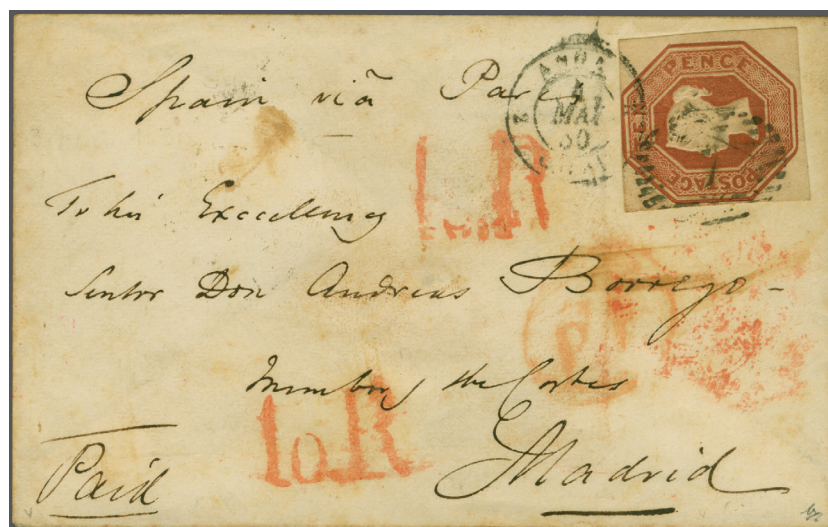 Spain viã Paris
PENCE
POSTAGE
4
MAI
50
To his Excellency
Senhor Don Andreas Borrego -
Member of the Cortes
10 R
Paid
Madrid